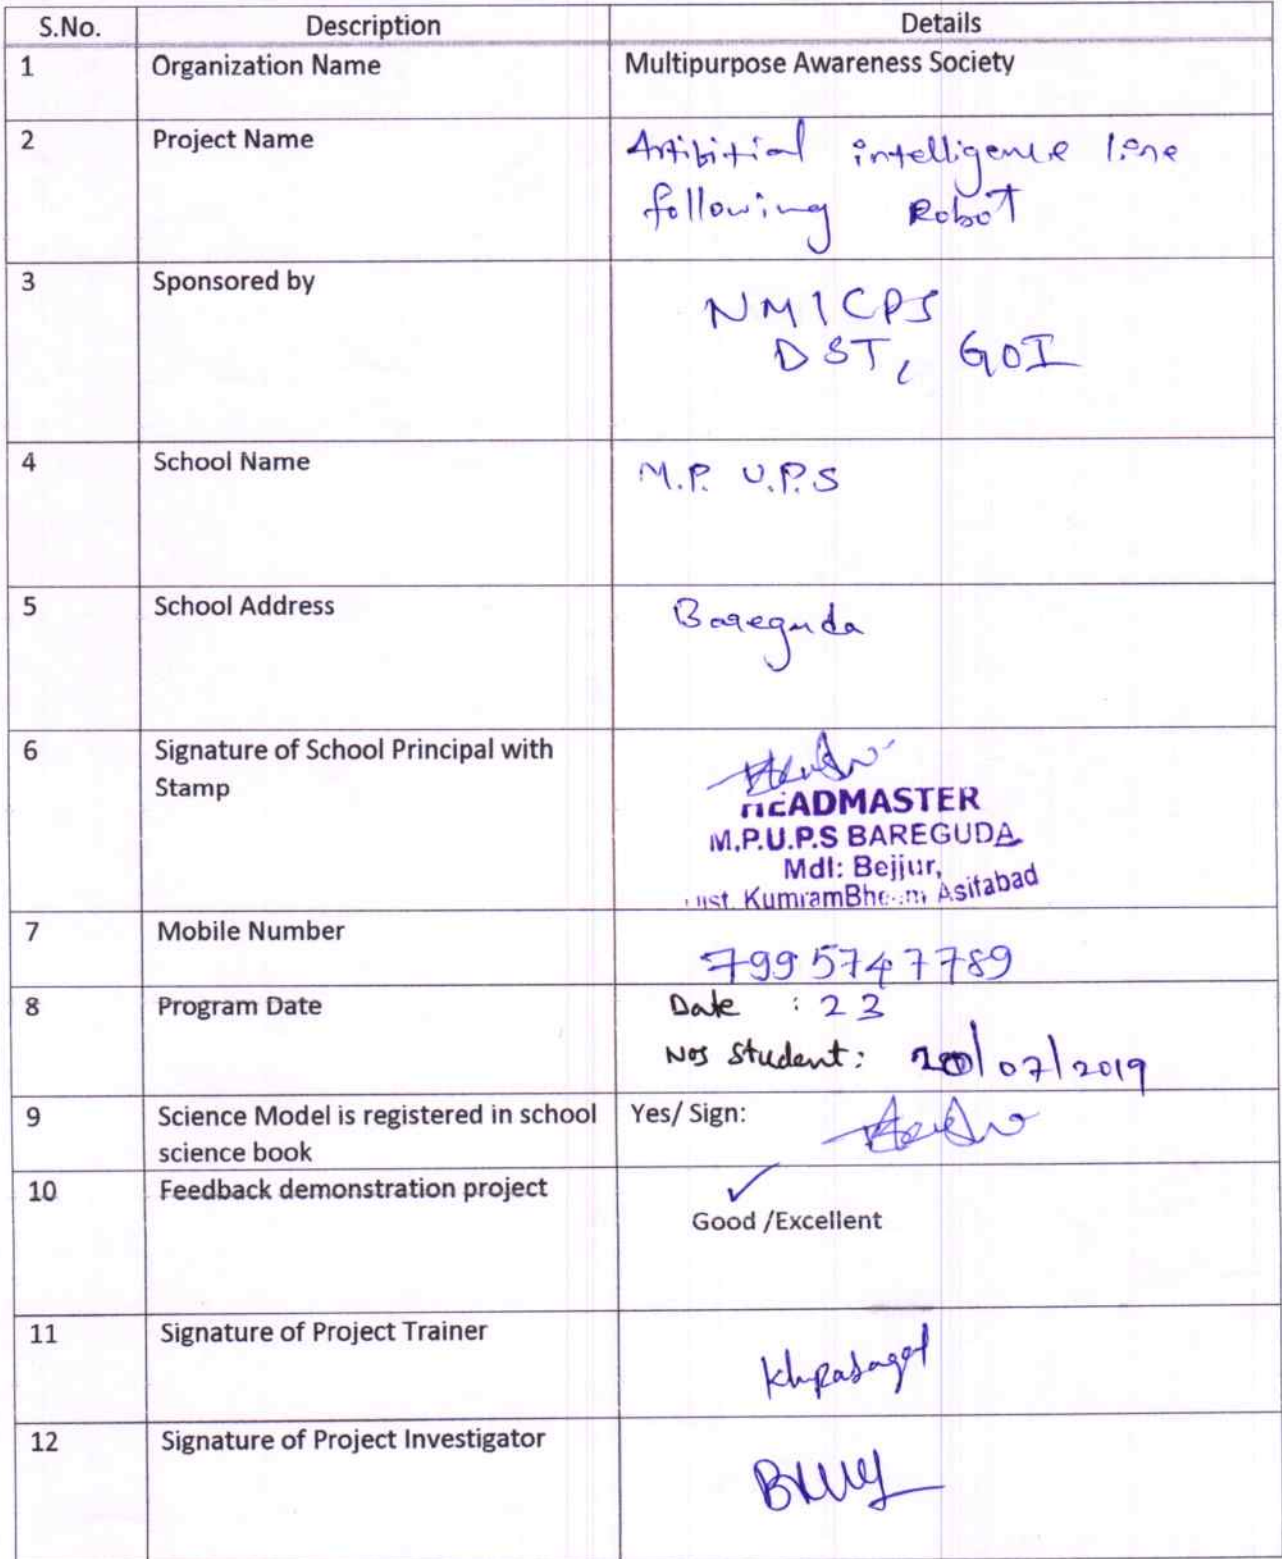 S.No. Description Details
1 Organization Name Multipurpose Awareness Society
2 Project Name Artibitial intelligence line
following Robot
3 Sponsored by NMICPS
DST, GOI
4 School Name M.P. U.P.S
5 School Address Bareguda
6 Signature of School Principal with
Stamp
HEADMASTER
M.P.U.P.S BAREGUDA
Mdl: Bejjur,
Dist. KumramBheem Asifabad
7 Mobile Number 7995747789
8 Program Date Date : 23
Nos Student: 20/07/2019
9 Science Model is registered in school Yes/ Sign:
science book
10 Feedback demonstration project
Good /Excellent
11 Signature of Project Trainer
12 Signature of Project Investigator